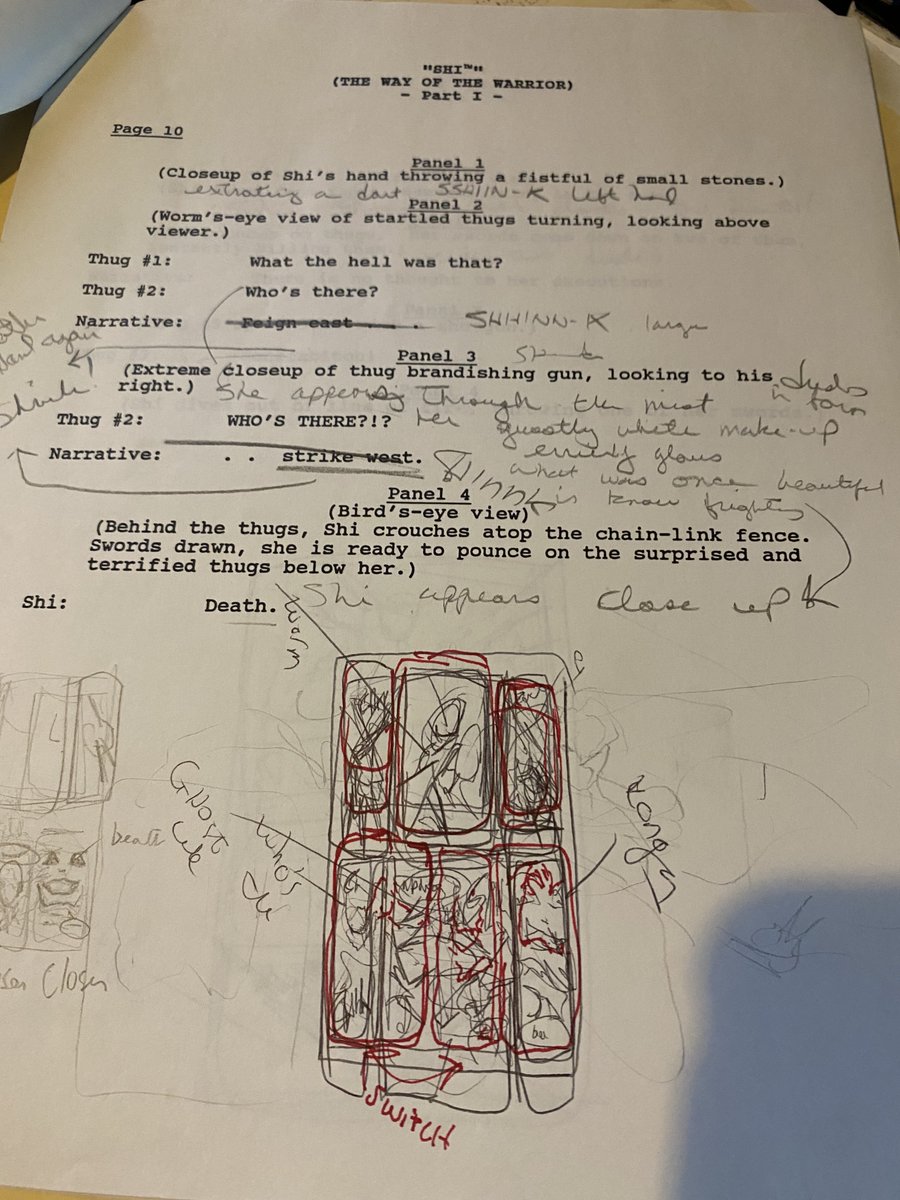 "SHI™"
(THE WAY OF THE WARRIOR)
- Part I -
Page 10
Panel 1
(Closeup of Shi's hand throwing a fistful of small stones.)
extrating a dart SSHIIN-K left hand
Panel 2
(Worm's-eye view of startled thugs turning, looking above
viewer.)
Thug #1: What the hell was that?
Thug #2: Who's there?
Narrative: Feign east . . . . SHHINN-K large
again
Panel 3
(Extreme closeup of thug brandishing gun, looking to his
right.) She appears through the mist
Thug #2: WHO'S THERE?!? her ghostly white make-up
Narrative: . . strike west. glows
what was once beautiful
is know
Panel 4
(Bird's-eye view)
(Behind the thugs, Shi crouches atop the chain-link fence.
Swords drawn, she is ready to pounce on the surprised and
terrified thugs below her.)
Shi: Death. Shi appears close up
Worm
Ghost
Like
Who's
death
Closer
SWITCH